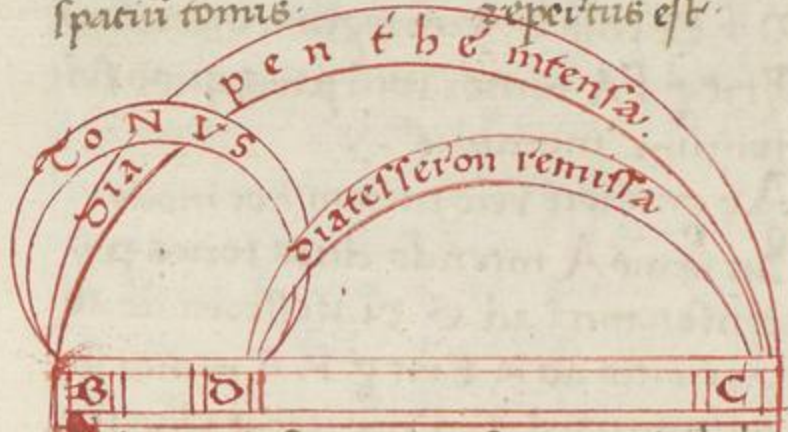 spatiū tonus. repertus est.
DIA penthe intensa.
TONVS
Diatesseron remissa
B D C